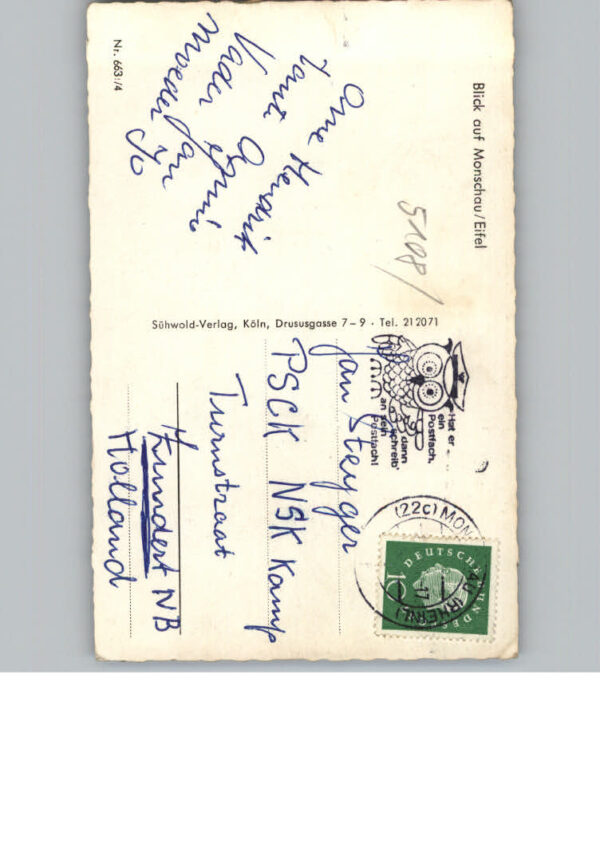 Blick auf Monschau/Eifel
5108/
Ome Hendrik
tante
Vader
Moeder Jan
Jo
Nr. 663/4
Sühwold-Verlag, Köln, Drususgasse 7–9 · Tel. 212071
Hat er
ein
Postfach,
dann
schreib'
an sein
Postfach!
(22c) MON
AU (RHEINL)
DEUTSCHE BUNDESPOST
10
Jan Steyger
PSCK NSK Kamp
Turnstraat
Kundert NB
Holland